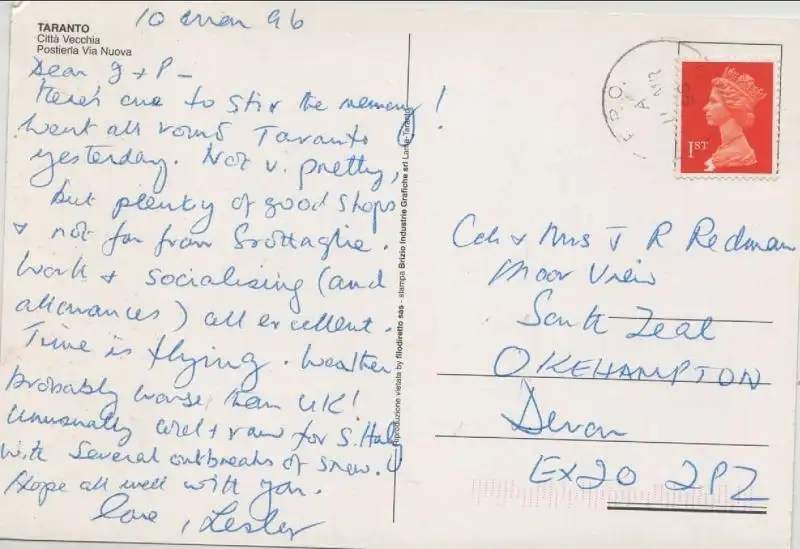 TARANTO
Città Vecchia
Postierla Via Nuova
10 Mar 96
Dear J + P -
Here's one to stir the memory!
Went all round Taranto
yesterday. Not v. pretty,
but plenty of good shops
+ not far from Grottaglie.
Work + socialising (and
allowances) all excellent.
Time is flying. Weather
probably worse than UK!
Unusually wet + raw for S. Italy
with several outbreaks of snow.
Hope all well with you.
Love, Lesley
Riproduzione vietata by filodiretto sas - stampa Brizio Industrie Grafiche srl Lama-Taranto
F.P.O.
11 MR
96
1ST
Col + Mrs J R Redman
Moor View
South Zeal
OKEHAMPTON
Devon
EX20 2PZ